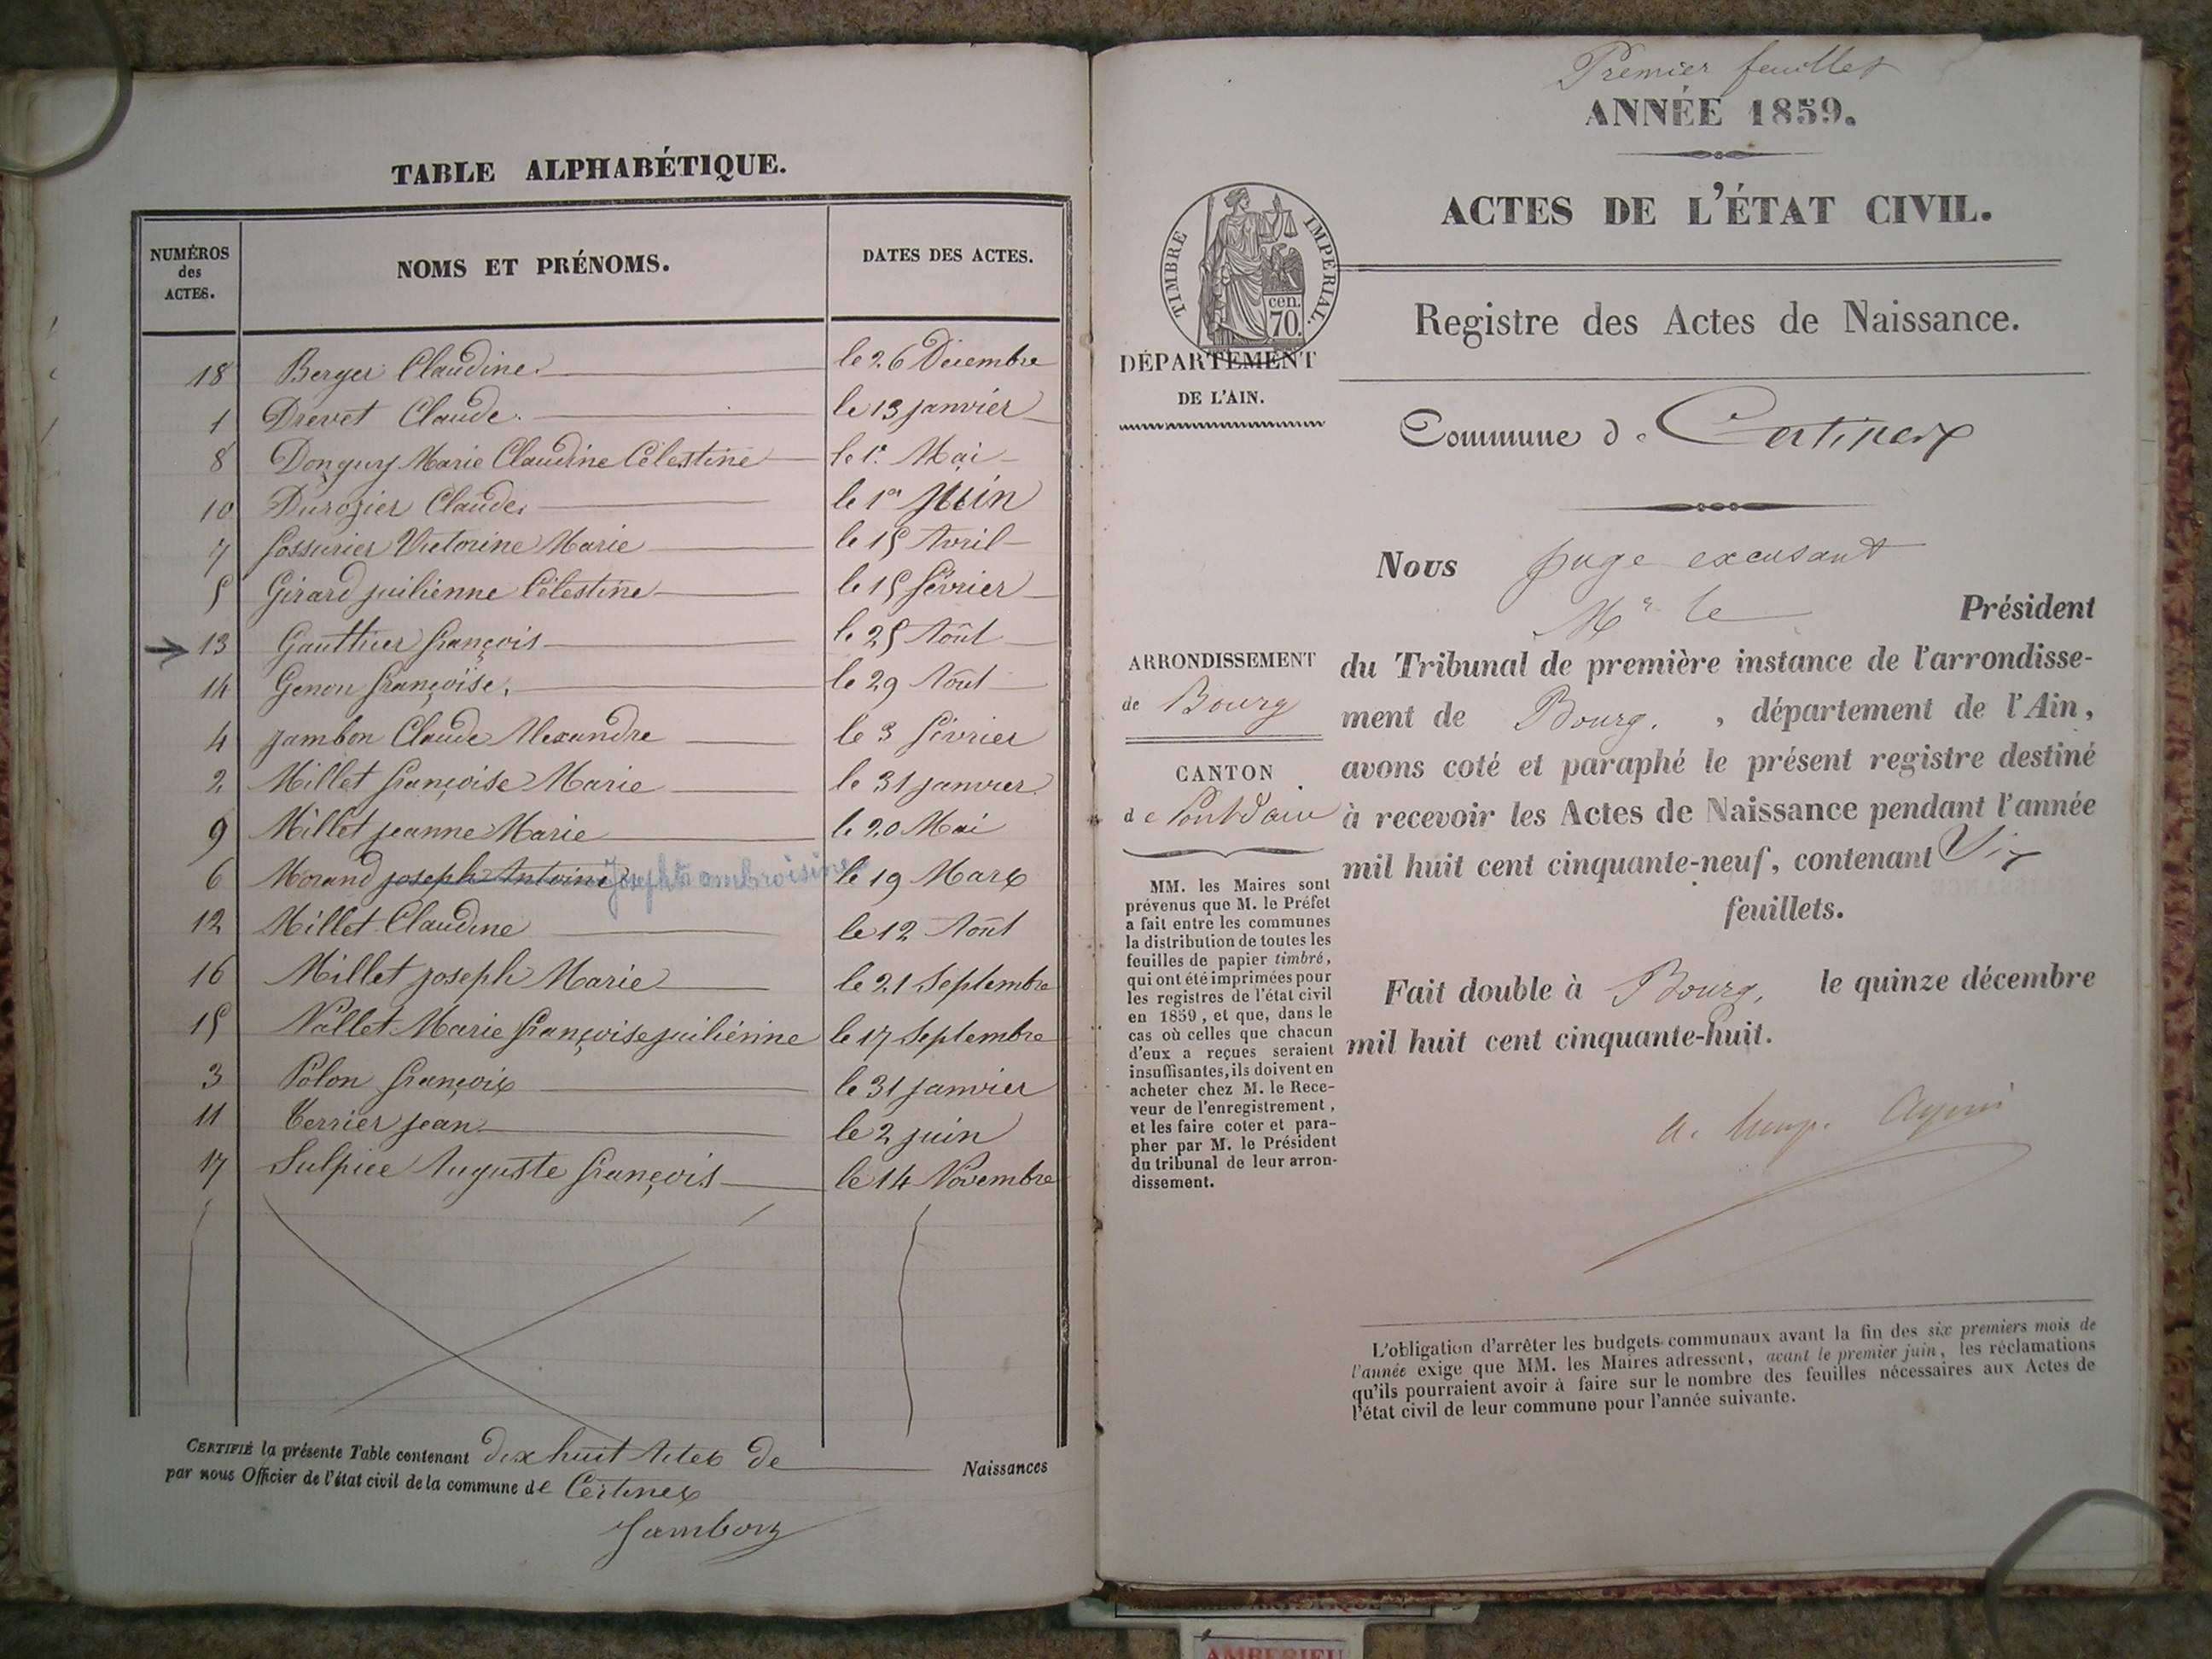 TABLE ALPHABÉTIQUE.
NUMÉROS des ACTES. NOMS ET PRÉNOMS. DATES DES ACTES.
18 Berger Claudine le 26 Décembre
1 Drevet Claude le 13 janvier
8 Donguy Marie Claudine Célestine le 1er Mai
10 Durozier Claude le 1er Juin
7 Victorine Marie le 15 Avril
5 Girard juilienne Célestine le 15 février
13 Gauthier françois le 25 Août
14 Genon françoise le 29 Août
4 jambon Claude Alexandre le 3 février
2 Millet françoise Marie le 31 janvier
9 Millet jeanne Marie le 20 Mai
6 Morand joseph Antoine Josephte ambroisine le 19 Mars
12 Millet Claudine le 12 Août
16 Millet joseph Marie le 21 Septembre
15 Nallet Marie françoise juiliénne le 17 Septembre
3 Polon françois le 31 janvier
11 Terrier jean le 2 juin
17 Sulpice Auguste françois le 14 Novembre
CERTIFIÉ la présente Table contenant dix huit Actes de Naissances
par nous Officier de l'état civil de la commune de Certines
Jambon
Premier feuillet
ANNÉE 1859.
ACTES DE L'ÉTAT CIVIL.
TIMBRE IMPÉRIAL.
cen. 70.
Registre des Actes de Naissance.
DÉPARTEMENT
DE L'AIN.
Commune de Certines
Nous juge excusant
Mr le Président
ARRONDISSEMENT
de Bourg
CANTON
de Pont d'ain
du Tribunal de première instance de l'arrondisse-
ment de Bourg. , département de l'Ain,
avons coté et paraphé le présent registre destiné
à recevoir les Actes de Naissance pendant l'année
mil huit cent cinquante-neuf, contenant Six
feuillets.
Fait double à Bourg, le quinze décembre
mil huit cent cinquante-huit.
MM. les Maires sont
prévenus que M. le Préfet
a fait entre les communes
la distribution de toutes les
feuilles de papier timbré,
qui ont été imprimées pour
les registres de l'état civil
en 1859, et que, dans le
cas où celles que chacun
d'eux a reçues seraient
insuffisantes, ils doivent en
acheter chez M. le Rece-
veur de l'enregistrement,
et les faire coter et para-
pher par M. le Président
du tribunal de leur arron-
dissement.
L'obligation d'arrêter les budgets communaux avant la fin des six premiers mois de
l'année exige que MM. les Maires adressent, avant le premier juin, les réclamations
qu'ils pourraient avoir à faire sur le nombre des feuilles nécessaires aux Actes de
l'état civil de leur commune pour l'année suivante.